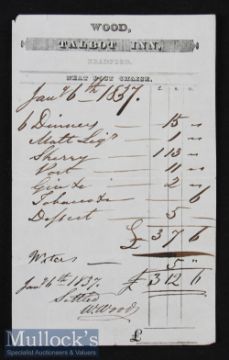 WOOD,
TALBOT INN,
BRADFORD.
NEAT POST CHAISE.
Jany 6th 1837.
6 Dinners 15 "
Malt Liqr 1 "
Sherry 1 13 "
Port 11 "
Gin &c 2 "
Tobacco &c 6
Dessert 5
£ 3 7 6
5 "
Jany 6th 1837. £ 3 12 6
Settled
W. Wood
£
Mullock's
Specialist Auctioneers & Valuers